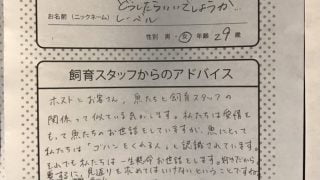 どうしたらいいでしょうか…
お名前(ニックネーム) レーベル
性別 男・女 年齢 29 歳
飼育スタッフからのアドバイス
ホストとお客さん、魚たちと飼育スタッフの
関係って似ている気がします。私たちは愛情を
もって魚たちのお世話をしていますが、魚にとって
私たちは「ゴハンをくれる人」と認識されています。
それでも私たちは一生懸命お世話をします。
要するに、見返りを求めてはいけないということですね